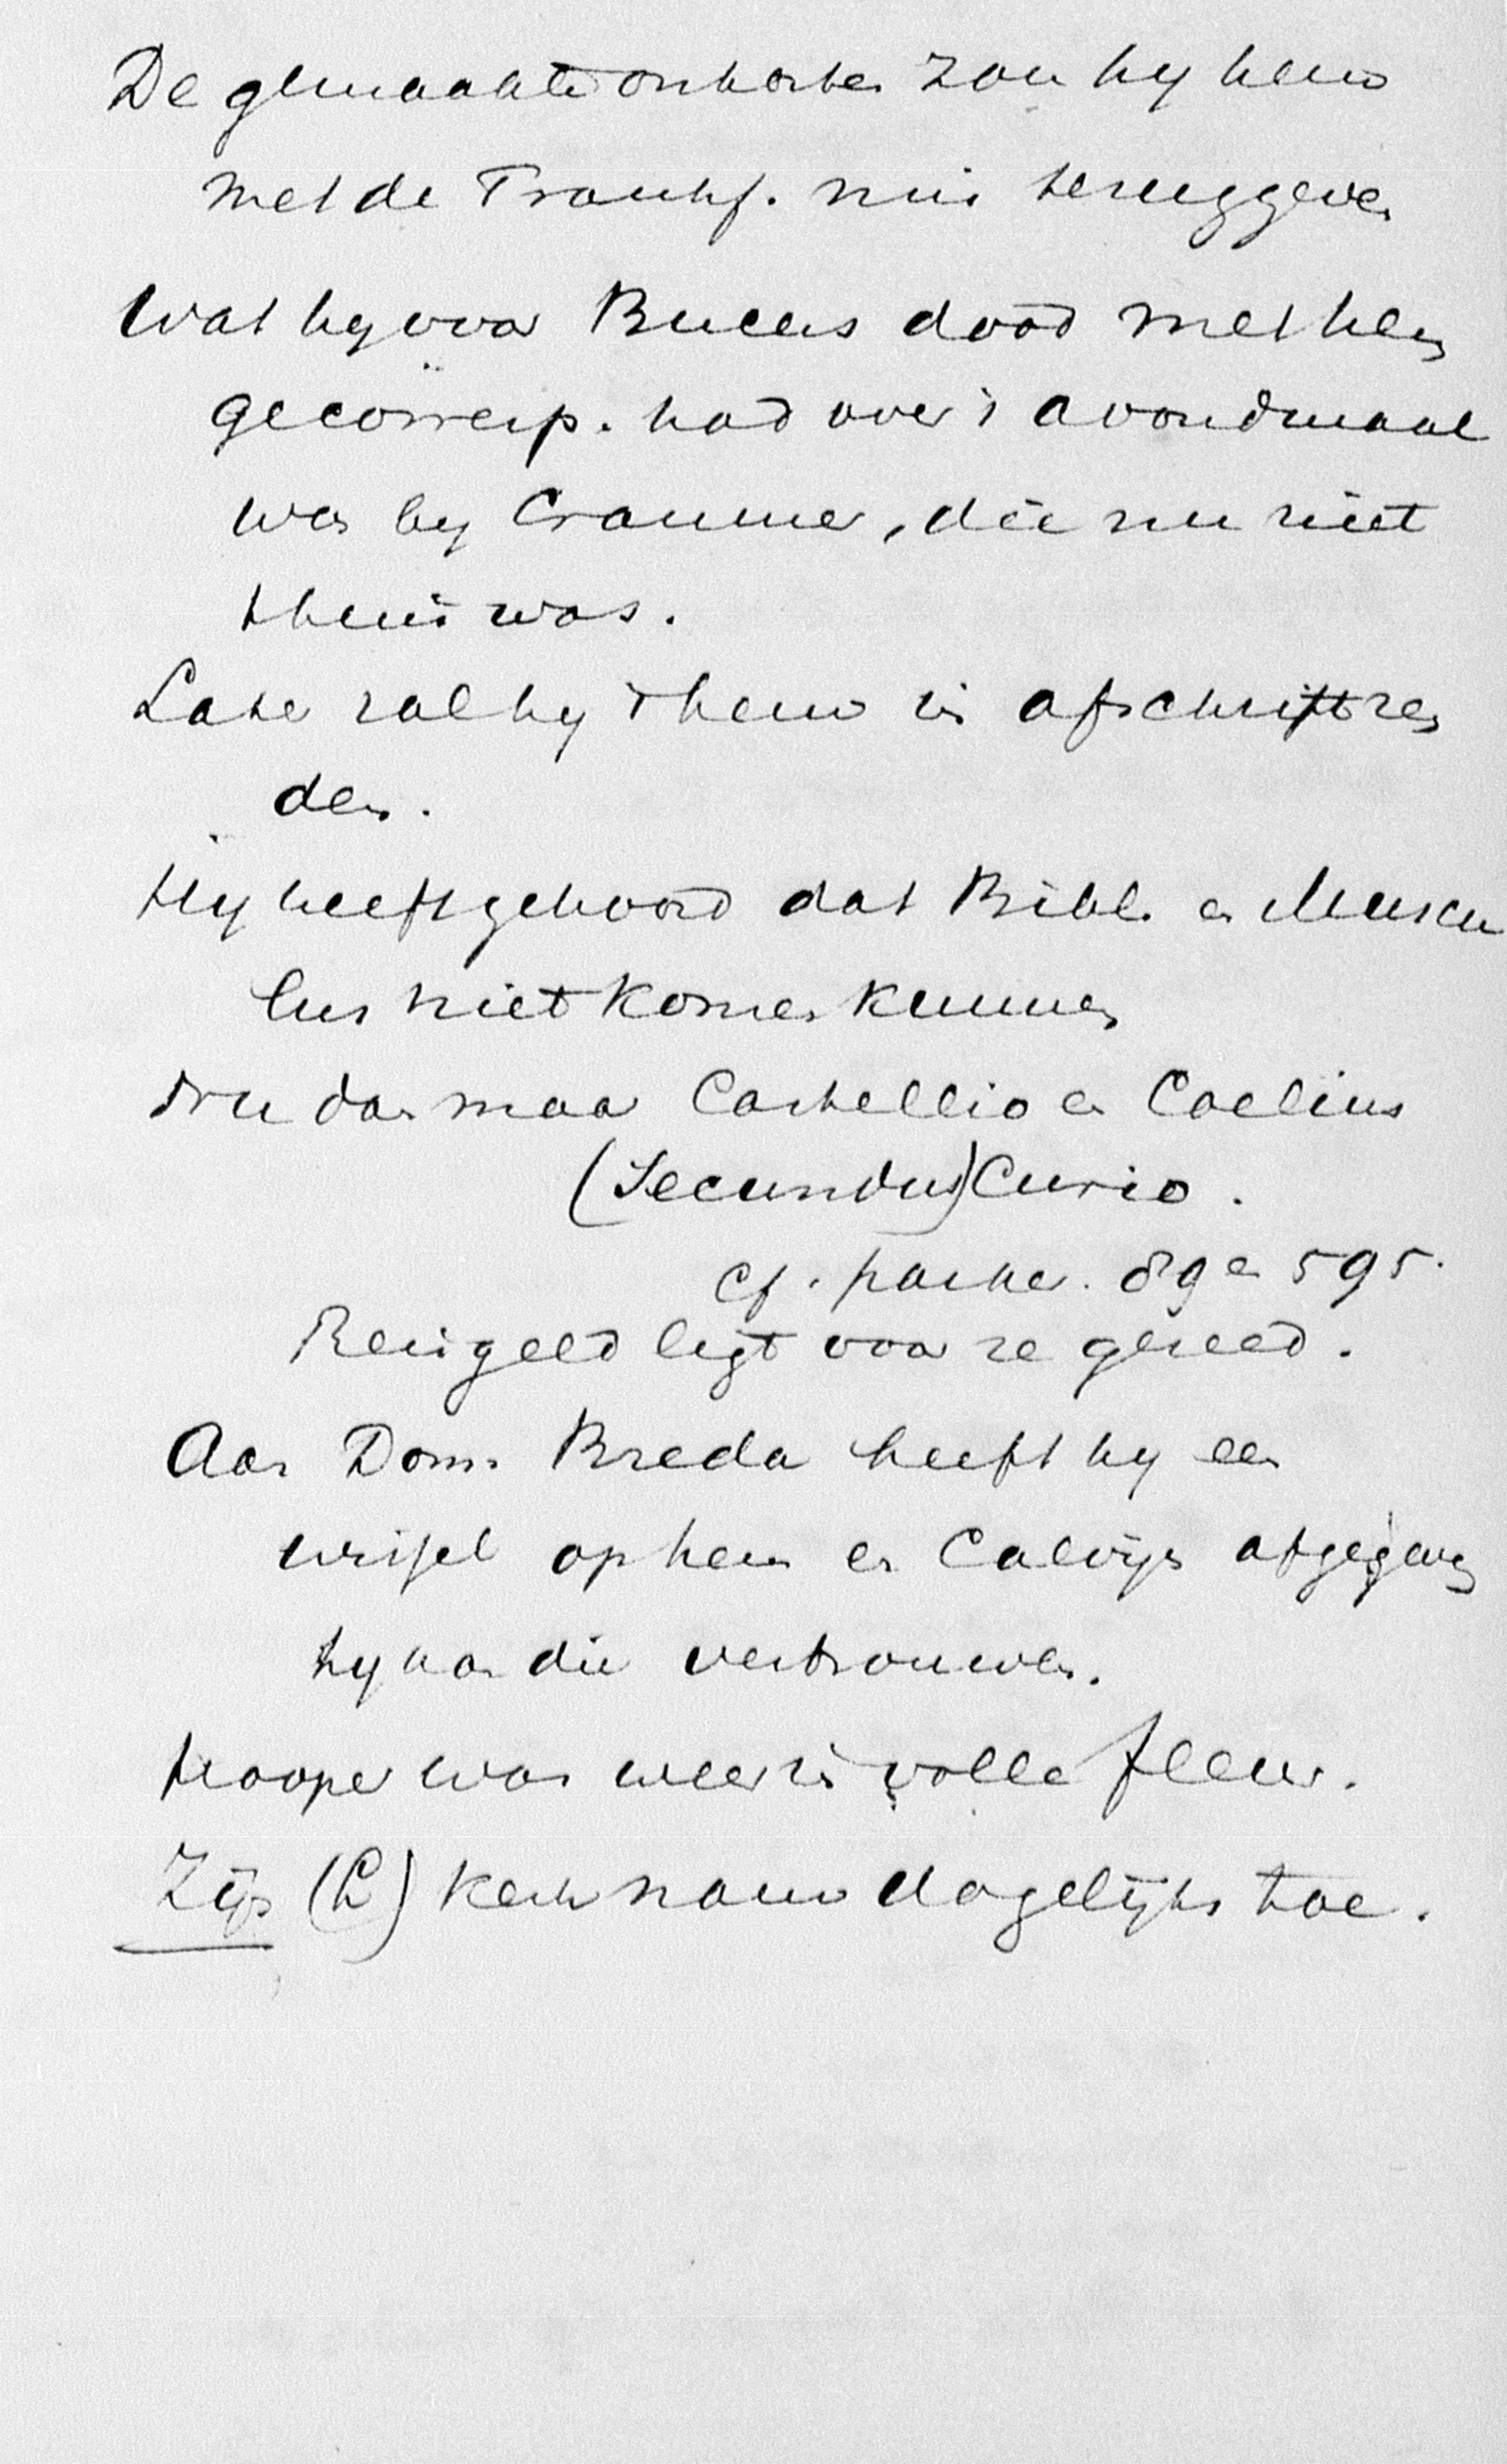 De gemaakte onkosten zou hy hem
met de Frankf. mis teruggeven
Wat hy voor Bucers dood met hem
gecorresp. had over 't avondmaal
was by Cranmer, die nu niet
thuis was.
Later zal hy 't hem in afschrift zen
den.
Hy heeft gehoord dat Bibl. en Muscu
lus niet komen kunnen
Nu dan maar Castellio en Coelius
(Secundus) Curio.
cf. parker. 89 en 595.
Reisgeld ligt voor ze gereed.
Aan Dom. Breda heeft hy een
wissel op hem en Calvijn afgegeven
hy kan die vertrouwen.
Hooper was weer in volle fleur.
Zijn (L) kerk nam dagelijks toe.